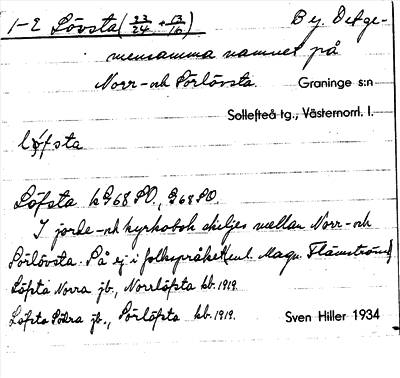 1-2 Lövsta (23/24 + 13/16) By. Det ge-
mensamma namnet på
Norr- och Sörlövsta. Graninge s:n
Sollefteå tg., Västernorrl. l.
löfsta
Löfsta k G68 SO., G68 SO.
I jorde- och kyrkobok skiljes mellan Norr- och
Sörlövsta. Så ej i folkspråket (enl. Magn. Flämström)
Löfsta Norra jb., Norrlöfsta kb. 1919.
Löfsta Södra jb., Sörlöfsta kb. 1919. Sven Hiller 1934